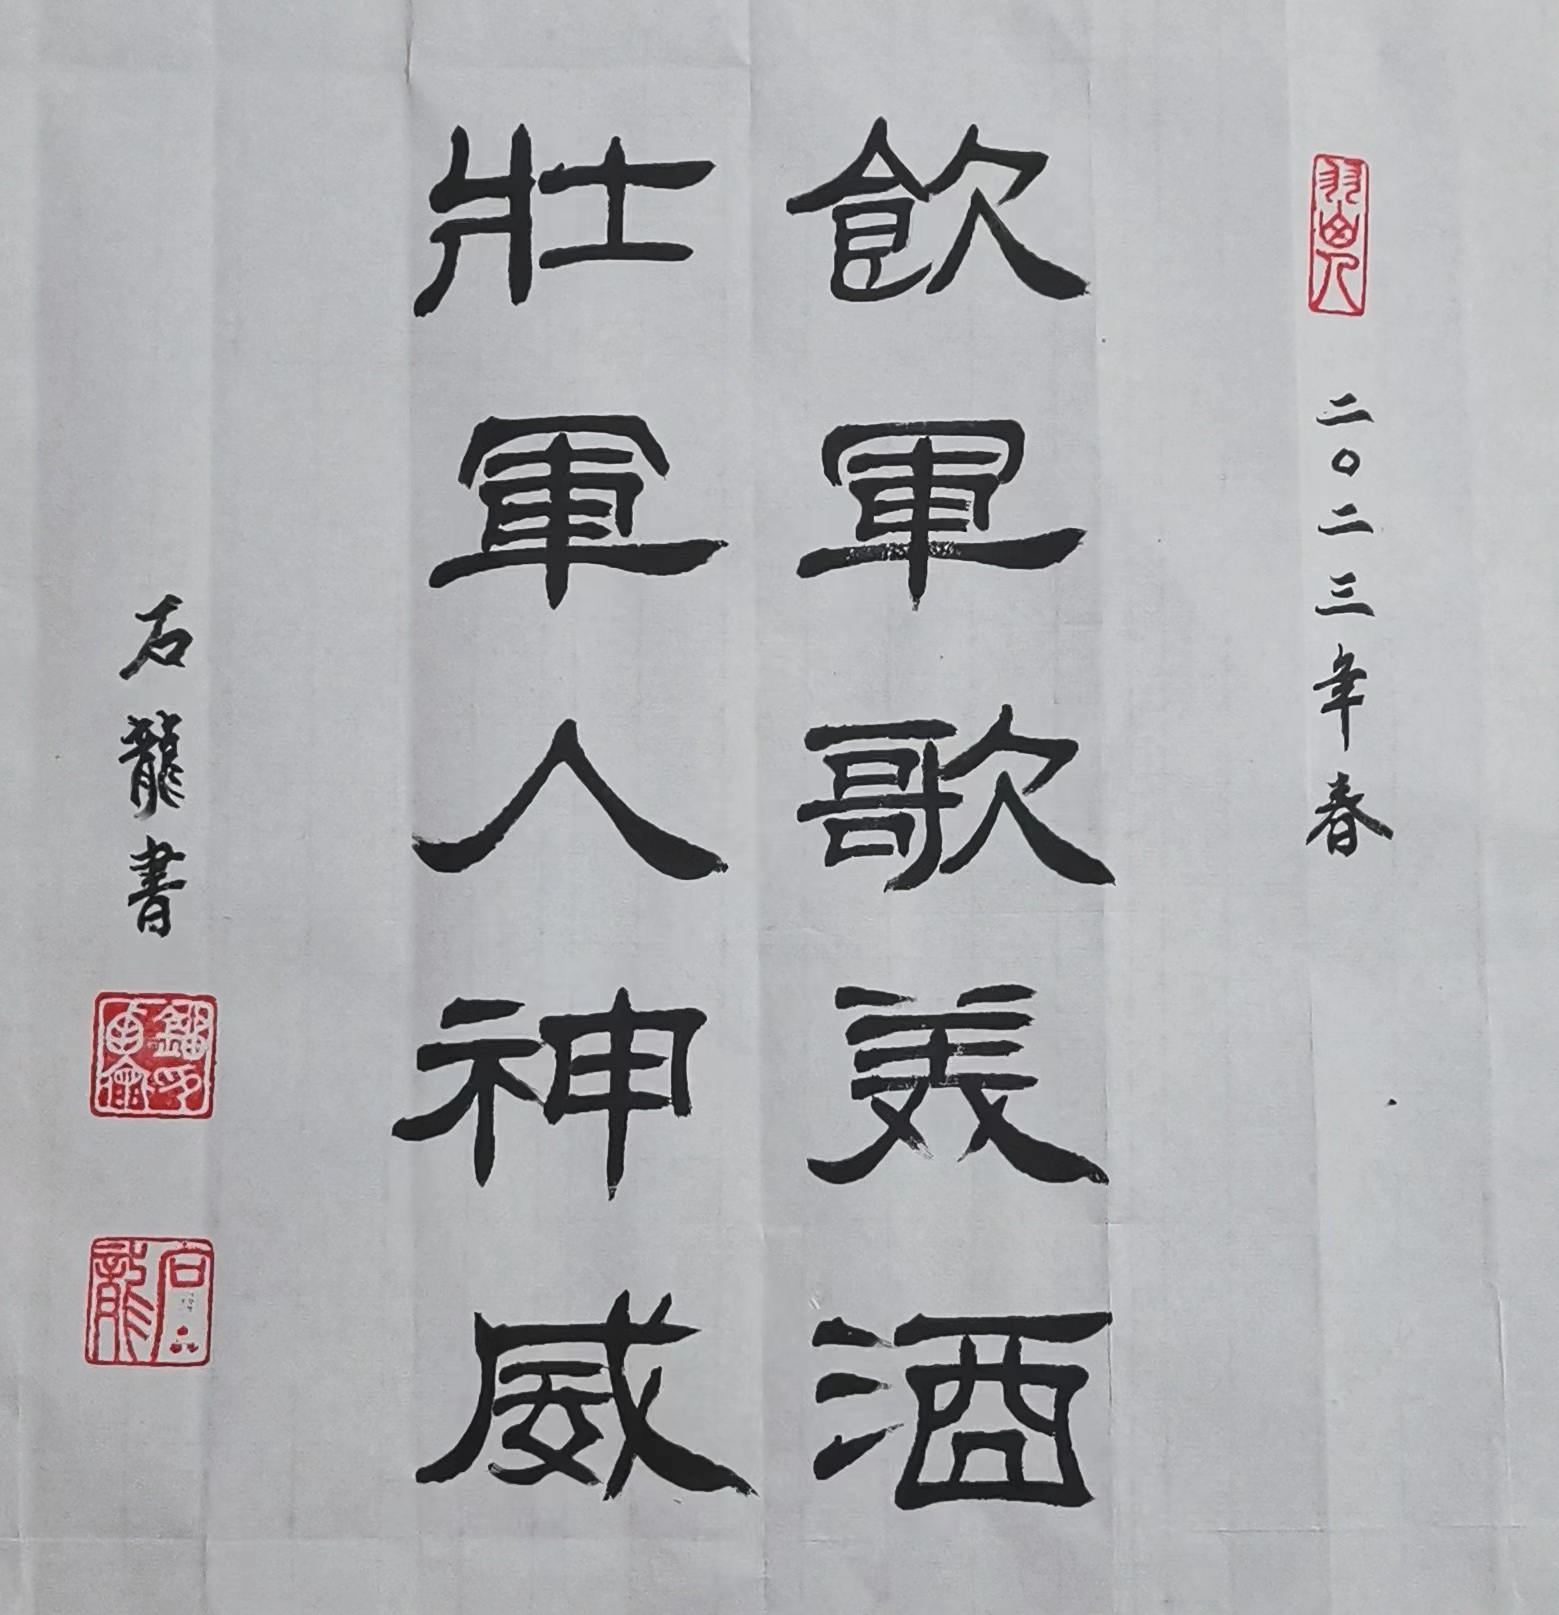 二〇二三年春
飲軍歌美酒
壯軍人神威
石龍書
石龍